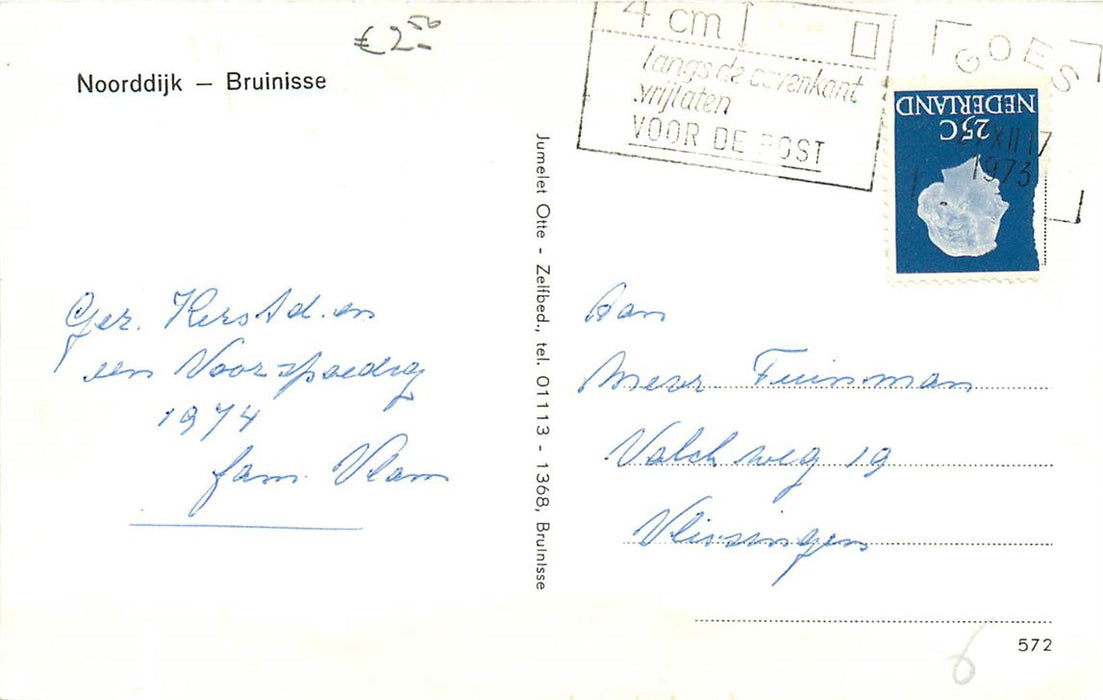 € 2.50
4 cm
langs de bovenkant
vrijlaten
VOOR DE POST
GOES
XII 17
1973
NEDERLAND
25C
Noorddijk – Bruinisse
Jumelet Otte - Zelfbed., tel. 01113 - 1368, Bruinisse
Gez. Kerstd. en
een Voorspoedig
1974
fam. Vlam
Aan
Mevr. Tuinman
Valckweg 19
Vlissingen
572
6